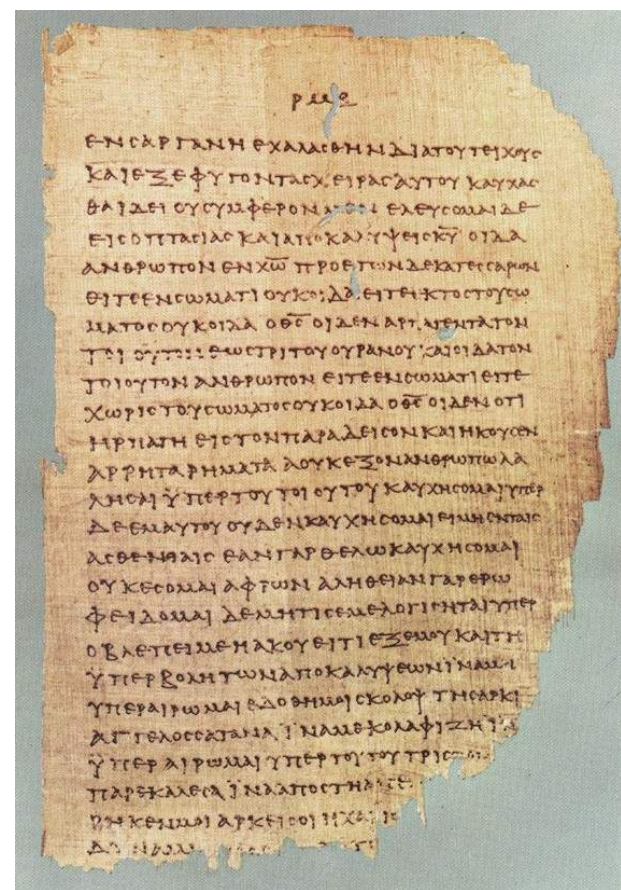 ΡΜΕ
ΕΝ ϹΑΡΓΑΝΗ ΕΧΑΛΑϹΘΗΝ ΔΙΑ ΤΟΥ ΤΕΙΧΟΥϹ
ΚΑΙ ΕΞΕΦΥΓΟΝ ΤΑϹ ΧΕΙΡΑϹ ΑΥΤΟΥ ΚΑΥΧΑϹ
ΘΑΙ ΔΕΙ ΟΥ ϹΥΜΦΕΡΟΝ ΕΛΕΥϹΟΜΑΙ ΔΕ
ΕΙϹ ΟΠΤΑϹΙΑϹ ΚΑΙ ΑΠΟΚΑΛΥΨΕΙϹ Κ̅Υ̅ ΟΙΔΑ
ΑΝΘΡΩΠΟΝ ΕΝ Χ̅Ω̅ ΠΡΟ ΕΤΩΝ ΔΕΚΑΤΕϹϹΑΡΩΝ
ΕΙΤΕ ΕΝ ϹΩΜΑΤΙ ΟΥΚ ΟΙΔΑ ΕΙΤΕ ΕΚΤΟϹ ΤΟΥ ϹΩ
ΜΑΤΟϹ ΟΥΚ ΟΙΔΑ Ο Θ̅Ϲ̅ ΟΙΔΕΝ ΑΡΠΑΓΕΝΤΑ ΤΟΝ
ΤΟΙΟΥΤΟΝ ΕΩϹ ΤΡΙΤΟΥ ΟΥΡΑΝΟΥ ΚΑΙ ΟΙΔΑ ΤΟΝ
ΤΟΙΟΥΤΟΝ ΑΝΘΡΩΠΟΝ ΕΙΤΕ ΕΝ ϹΩΜΑΤΙ ΕΙΤΕ
ΧΩΡΙϹ ΤΟΥ ϹΩΜΑΤΟϹ ΟΥΚ ΟΙΔΑ Ο Θ̅Ϲ̅ ΟΙΔΕΝ ΟΤΙ
ΗΡΠΑΓΗ ΕΙϹ ΤΟΝ ΠΑΡΑΔΕΙϹΟΝ ΚΑΙ ΗΚΟΥϹΕΝ
ΑΡΡΗΤΑ ΡΗΜΑΤΑ Α ΟΥΚ ΕΞΟΝ ΑΝΘΡΩΠΩ ΛΑ
ΛΗϹΑΙ ΫΠΕΡ ΤΟΥ ΤΟΙΟΥΤΟΥ ΚΑΥΧΗϹΟΜΑΙ ΥΠΕΡ
ΔΕ ΕΜΑΥΤΟΥ ΟΥΔΕΝ ΚΑΥΧΗϹΟΜΑΙ ΕΙ ΜΗ ΕΝ ΤΑΙϹ
ΑϹΘΕΝΕΙΑΙϹ ΕΑΝ ΓΑΡ ΘΕΛΩ ΚΑΥΧΗϹΟΜΑΙ
ΟΥΚ ΕϹΟΜΑΙ ΑΦΡΩΝ ΑΛΗΘΕΙΑΝ ΓΑΡ ΕΡΩ
ΦΕΙΔΟΜΑΙ ΔΕ ΜΗ ΤΙϹ ΕΜΕ ΛΟΓΙϹΗΤΑΙ ΥΠΕΡ
Ο ΒΛΕΠΕΙ ΜΕ Η ΑΚΟΥΕΙ ΤΙ ΕΞ ΕΜΟΥ ΚΑΙ ΤΗ
ΫΠΕΡΒΟΛΗ ΤΩΝ ΑΠΟΚΑΛΥΨΕΩΝ ΪΝΑ ΜΗ
ΥΠΕΡΑΙΡΩΜΑΙ ΕΔΟΘΗ ΜΟΙ ϹΚΟΛΟΨ ΤΗ ϹΑΡΚΙ
ΑΓΓΕΛΟϹ ϹΑΤΑΝΑ ΪΝΑ ΜΕ ΚΟΛΑΦΙΖΗ
ΫΠΕΡΑΙΡΩΜΑΙ ΥΠΕΡ ΤΟΥΤΟΥ ΤΡΙϹ
ΠΑΡΕΚΑΛΕϹΑ ΪΝΑ ΑΠΟΣΤΗ
ΡΗΚΕΝ ΜΟΙ ΑΡΚΕΙ ϹΟΙ Η ΧΑΡΙϹ